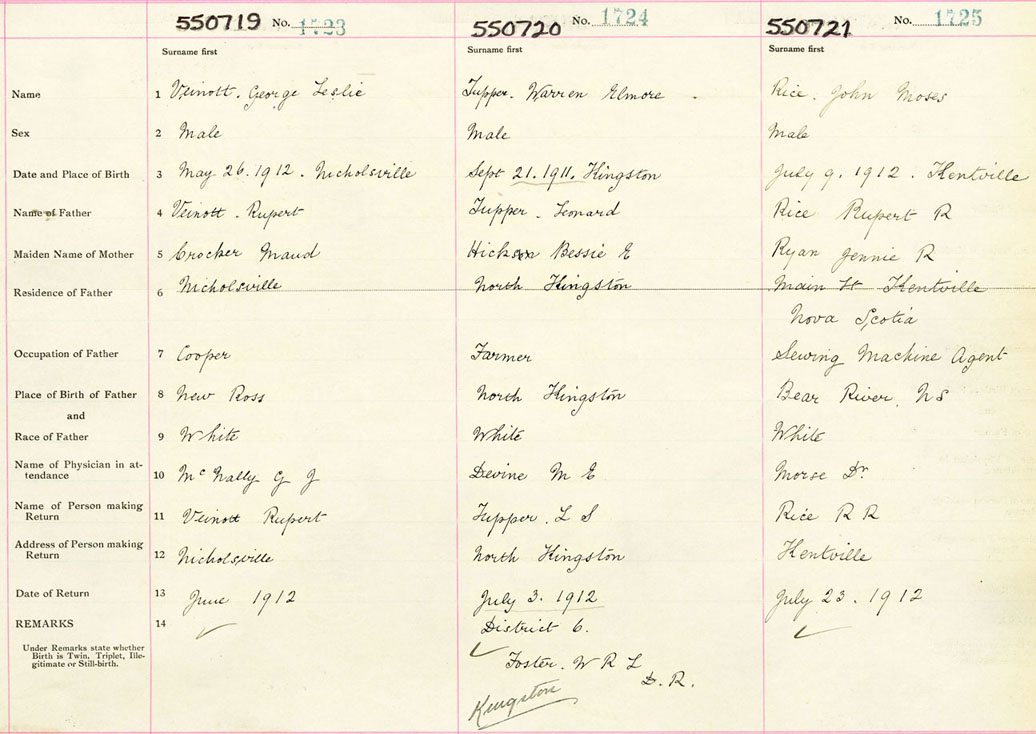 550719 No. 1723 550720 No. 1724 550721 No. 1725
Surname first Surname first Surname first
Name 1 Veinott. George Leslie Tupper. Warren Elmore Rice. John Moses
Sex 2 Male Male Male
Date and Place of Birth 3 May 26. 1912. Nicholsville Sept 21. 1911. Kingston July 9. 1912. Kentville
Name of Father 4 Veinott. Rupert Tupper. Leonard Rice Rupert R
Maiden Name of Mother 5 Crocker Maud Hickson Bessie E Ryan Jennie R
Residence of Father 6 Nicholsville North Kingston Main St Kentville
Nova Scotia
Occupation of Father 7 Cooper Farmer Sewing Machine Agent
Place of Birth of Father 8 New Ross North Kingston Bear River, NS
and
Race of Father 9 White White White
Name of Physician in at-
tendance 10 McNally G J Devine M E Morse Dr.
Name of Person making
Return 11 Veinott Rupert Tupper. L S Rice R R
Address of Person making
Return 12 Nicholsville North Kingston Kentville
Date of Return 13 June 1912 July 3. 1912 July 23. 1912
REMARKS 14 District 6.
Under Remarks state whether
Birth is Twin, Triplet, Ille-
gitimate or Still-birth.
Foster. W R L
D. R.
Kingston